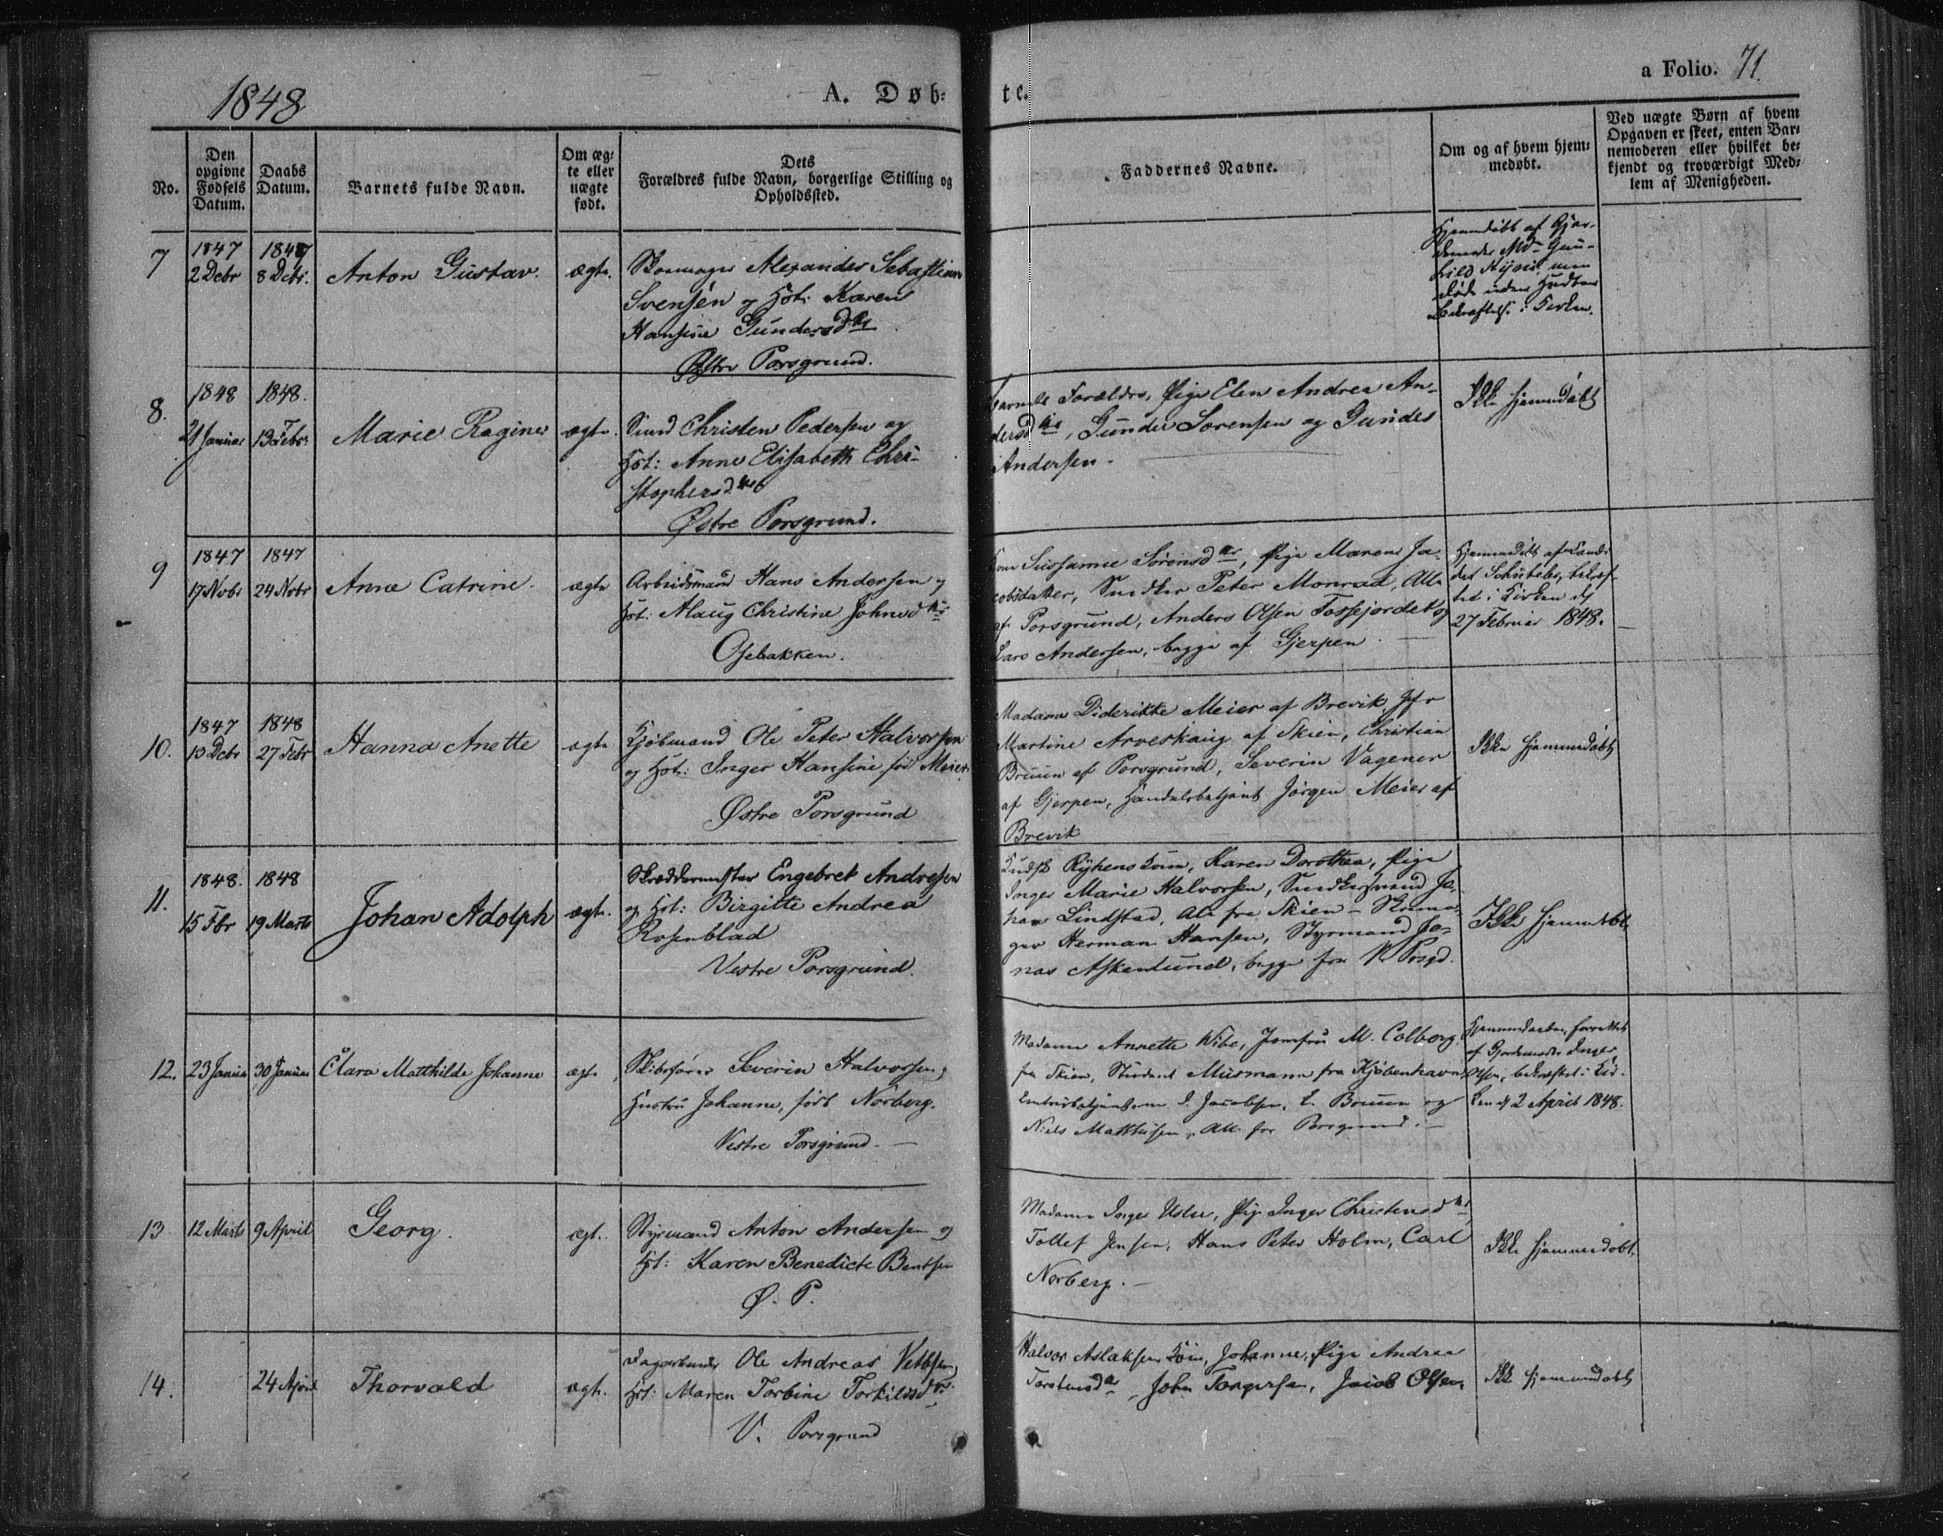 1848
A. Døb-
te.
a Folio. 71.
No.
Den
opgivne
Fødsels
Datum.
Daabs
Datum.
Barnets fulde Navn.
Om æg-
te eller
uægte
født.
Dets
Forældres fulde Navn, borgerlige Stilling og
Opholdssted.
Faddernes Navne.
Om og af hvem hjem-
medøbt.
Ved uægte Børn af hvem
Opgaven er skeet, enten Bar-
nemoderen eller hvilket be-
kjendt og troværdigt Med-
lem af Menigheden.
7
1847
2 Debr
1847
8 Debr.
Anton Gustav.
ægte.
Skomager Alexander Sebastian
Svensen og Hst: Karen
Hansine Gundersdtr
Østre Porsgrund.
Hjemmedøbt af Gjor-
uden
i Kirken.
8.
1848
21 Januar
1848.
13 Febr.
Marie Ragine
ægte.
Christen Pedersen og
Hst: Anne Elisabeth Chri-
stophersdtr
Østre Porsgrund.
Barnets Forældre, Pige Elen Andrea An-
dersdtr, Gunder Sørensen og Gunder
Andersen.
Ikke hjemmedøbt
9
1847
17 Novbr
1847
24 Novbr
Anne Catrine.
ægte
Arbeidsmand Hans Andersen og
Hst: Alaug Christine Johnsdtr
Osebakken.
Kone Sussanne Sørensdtr, Pige Maren Ja-
cobsdatter, Snedker Peter Monrad, Alle
af Porsgrund, Anders Olsen Fossejordet og
Lars Andersen, begge af Gjerpen.
Hjemmedøbt af Candi-
dat Schubeler, bekræf-
tet i Kirken d.
27 Februar 1848.
10.
1847
13 Debr
1848
27 Febr
Hanna Anette
ægte
Kjøbmand Ole Peter Halvorsen
og Hst: Inger Hansine fød Meier.
Østre Porsgrund
Madam Diderikke Meier af Brevik, Jfr
Martine Arveskaug af Skien, Christian
Bruun af Porsgrund, Severin Vagener
af Gjerpen, Handelsbetjent Jørgen Meier af
Brevik
Ikke hjemmedøbt
11.
1848.
15 Fbr
1848
19 Marts
Johan Adolph
ægte.
Skræddermester Engebret Andresen
og Hst: Birgitte Andrea
Rosenblad
Vestre Porsgrund.
Kone, Karen Dorothea, Pige
Inger Marie Halvorsen, Snedkersvend Jo-
han Lindstad, Alle fra Skien – Skoma-
ger Herman Hansen, Styrmand Jo-
nas Askenlund, begge fra V. Porsgd.
Ikke hjemmedøbt.
12.
23 Januar
30 Januar
Clara Matthilde Johanne
ægte
Skibsfører Severin Halvorsen,
Hustru Johanne, født Norberg.
Vestre Porsgrund. –
Madame Annette Wibe, Jomfru M. Colborg
fra Skien, Student Musmann fra Kjøbenhavn,
J. Jacobsen, L. Bruun og
Niels Matthisen, Alle fra Porsgrund. –
Hjemmedaaben forrettet
af Gjordemoder Inger
Olsen, bekræftet i Kir-
ken d. 2 April 1848.
13
12 Marts
9 April
Georg.
ægte.
Styrmand Anton Andersen og
Hst: Karen Benedicte Bentsen
Ø. P.
Madame Inger, Pige Inger Christensdtr,
Tollef Jensen, Hans Peter Holm, Carl
Norberg. –
Ikke hjemmedøbt.
14.
24 April
Thorvald
ægte.
Dagarbeider Ole Andreas
Hst: Maren Torbine Torkildsdtr.
V. Porsgrund
Halvor Aslaksens Kone, Johanne, Pige Andrea
Torstensdtr, John Torgersen, Jacob Olsen.
Ikke hjemmedøbt